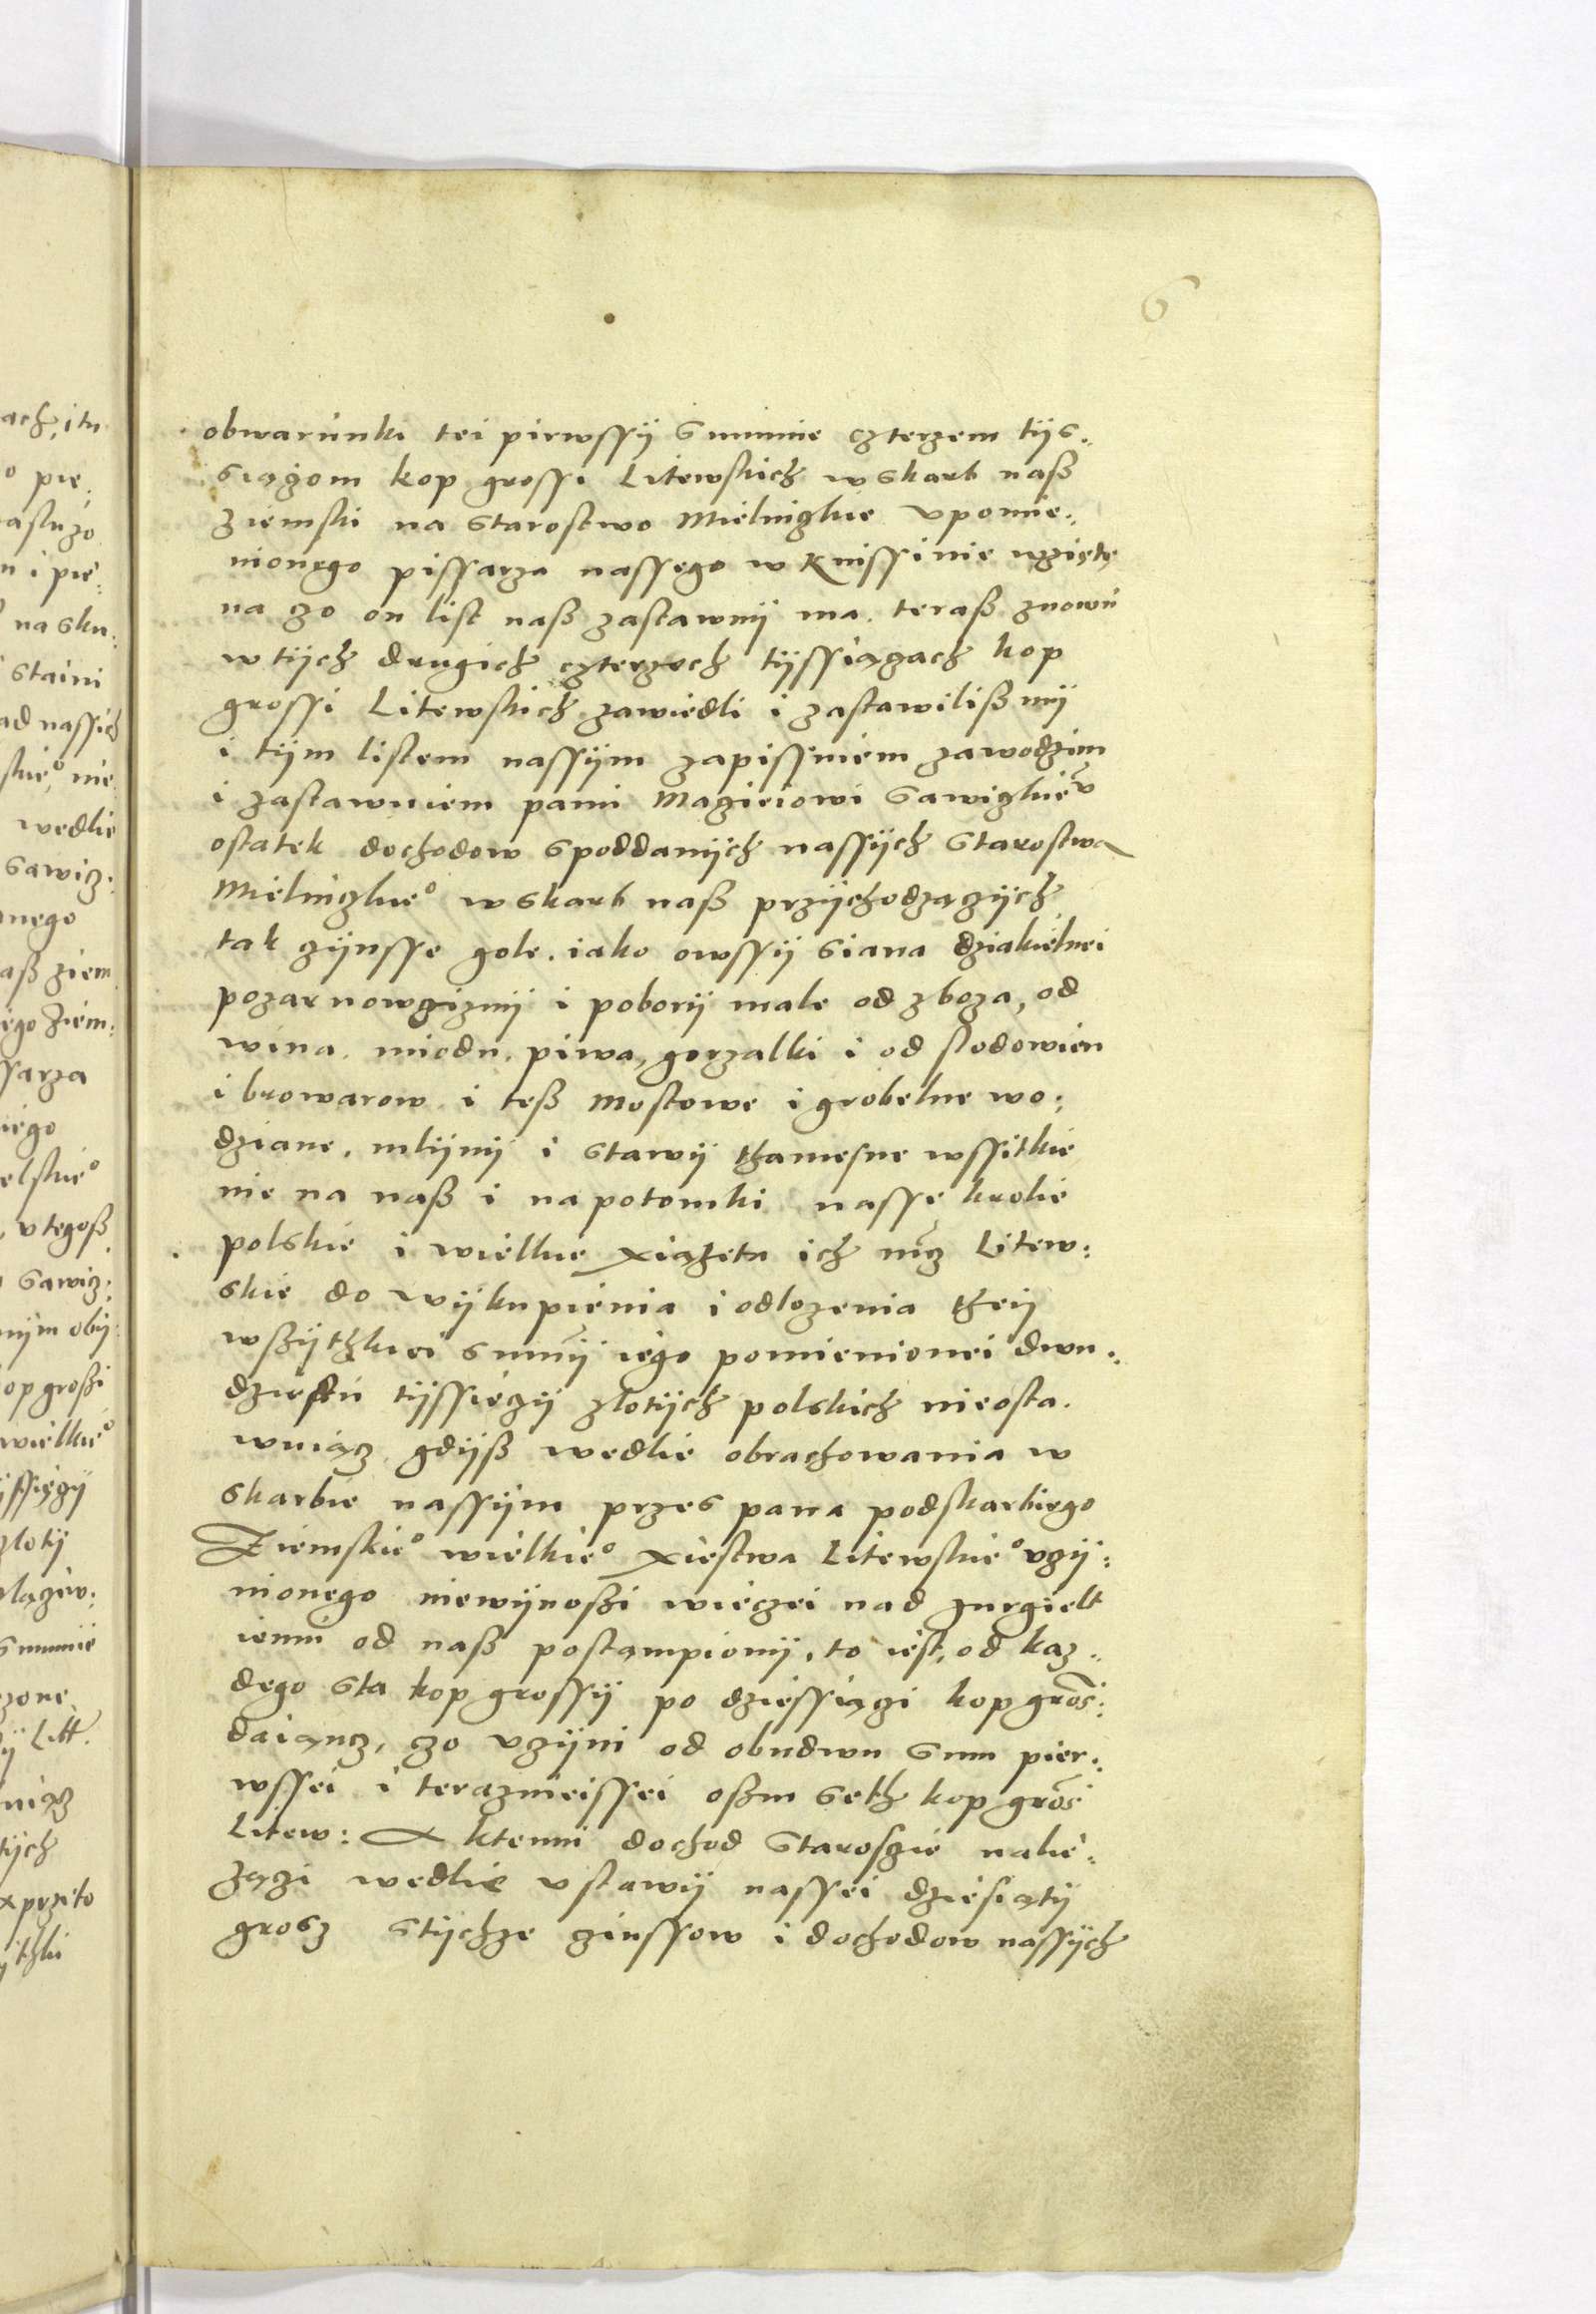 6
obwarunku tei pirwssÿ Summie czterzem tijs:
siązom kop grossi Litewskich w skarb naß
ziemski na Starostwo Mielniczkie v pomie:
nionego pissarza nassego w Knissinie wzięte
na czo on list naß zastawnÿ ma. teraß znowu
w tÿch drugich czterzech tÿssiączach kop
grossi Litewskich zawiedli i zastawilißmÿ
i tÿm listem nassÿm zapissniem zawodzim
i zastawniem panu Maczieiowi Sawiczkieͫv
ostatek dochodow spoddanÿch nassÿch Starostwa
Mielniczkieº w skarb naß przÿchodzączÿch
tak czÿnsse gole. iako owssÿ siana dziakielnei
pozarnowczizmÿ i poborÿ małe od zboza, od
wina. miodu. piwa, gorzalki i od slodowien
i browarow i teß Mostowe i grobelne wo:
dziane. mlÿnÿ i stawÿ thamesne wssitkie
nie na naß i na potomki nasse krolie
polskie i wielkie xiązeta ich mcz Litew:
skie do wÿkupienia i odlozenia theÿ
wßÿthkiei summÿ iego pomienionei dwu:
dziestu tÿssięczÿ zlotÿch polskich nieosta.
wuiącz gdÿß wedlie obrachowania w
skarbie nassÿm przes pana podskarbiego
Ziemskieº wielkieº xiestwa Litewskieº vczÿ:
nionego niewÿnoßi wieczei nad Jurgielt
iemu od naß postampionÿ, to iest, od kaz:
dego sta kop grossÿ po dziessiączi kop gros:
daiąncz, czo vczÿni od obudwu Sum pier:
wssei i teraznieissei oßm seth kop gros
Litew: A ktemu dochod Staroscie nalie:
zączi wedlie vstawÿ nassei dziesiątÿ
grosz stÿchze czinssow i dochodow nassÿch